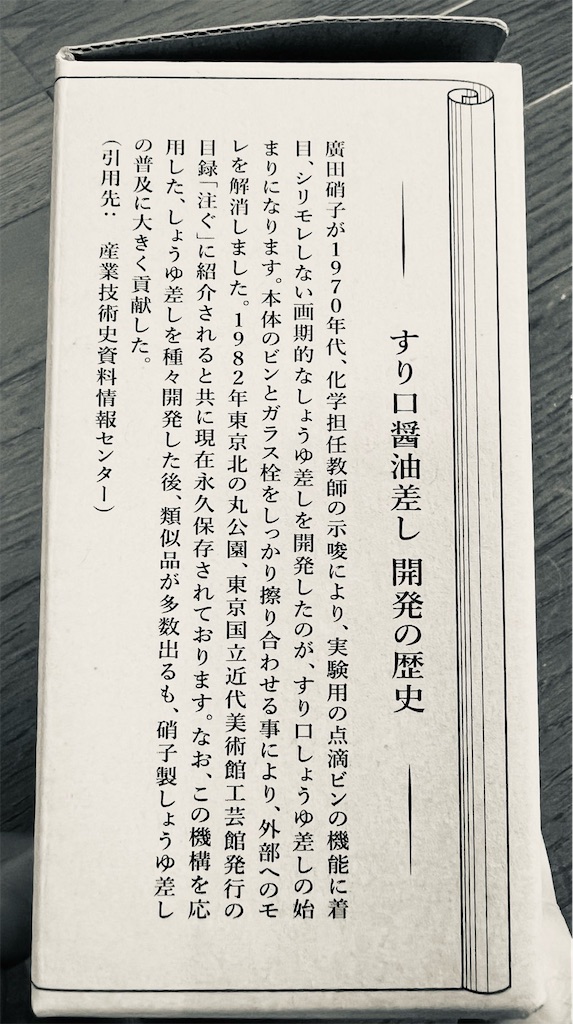 すり口醤油差し 開発の歴史
廣田硝子が1970年代、化学担任教師の示唆により、実験用の点滴ビンの機能に着
目、シリモレしない画期的なしょうゆ差しを開発したのが、すり口しょうゆ差しの始
まりになります。本体のビンとガラス栓をしっかり擦り合わせる事により、外部へのモ
レを解消しました。1982年東京北の丸公園、東京国立近代美術館工芸館発行の
目録「注ぐ」に紹介されると共に現在永久保存されております。なお、この機構を応
用した、しょうゆ差しを種々開発した後、類似品が多数出るも、硝子製しょうゆ差し
の普及に大きく貢献した。
(引用先: 産業技術史資料情報センター)